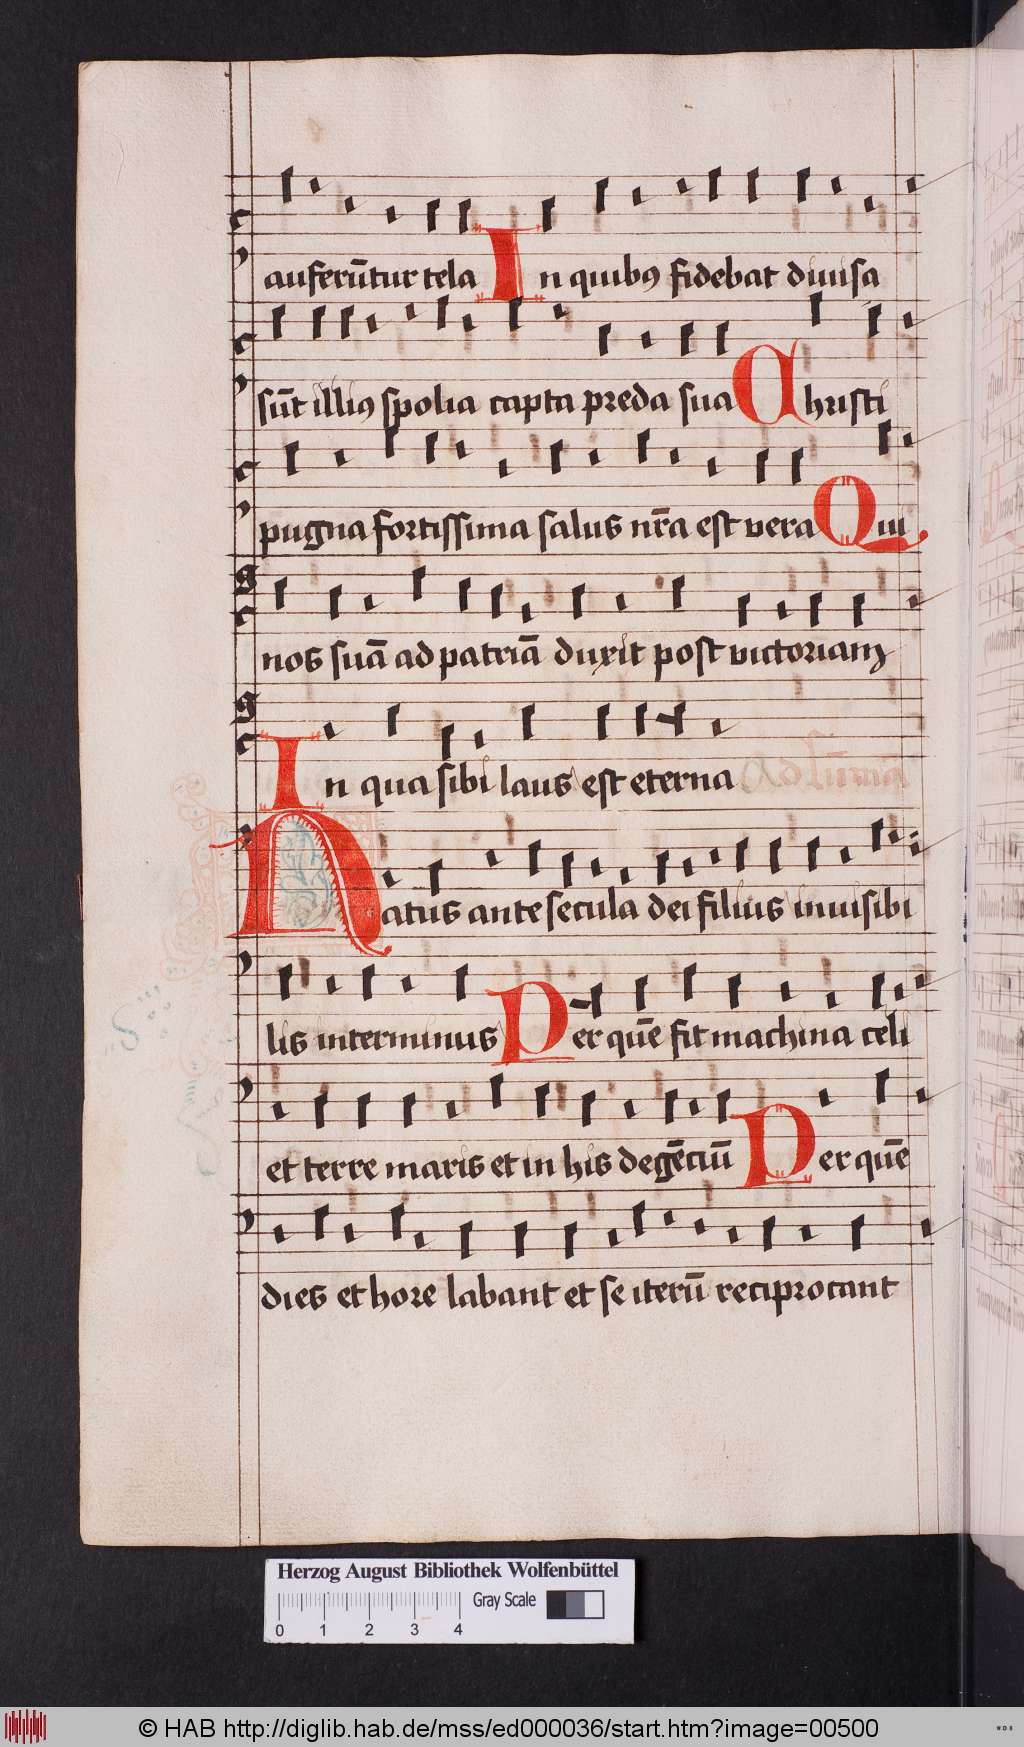 auferūtur tela In quibꝰ fidebat diuisa
sūt illiꝰ spolia capta preda sua Christi
pugna fortissima salus nr̄a est vera Qui
nos suā ad patriā duxit post victoriam
In qua sibi laus est eterna
Natus ante secula dei filius inuisibi
lis interminus Per quē fit machina celi
et terre maris et in his degēciū Per quē
dies et hore labant et se iterū reciprocant
Herzog August Bibliothek Wolfenbüttel
Gray Scale
0 1 2 3 4
© HAB http://diglib.hab.de/mss/ed000036/start.htm?image=00500